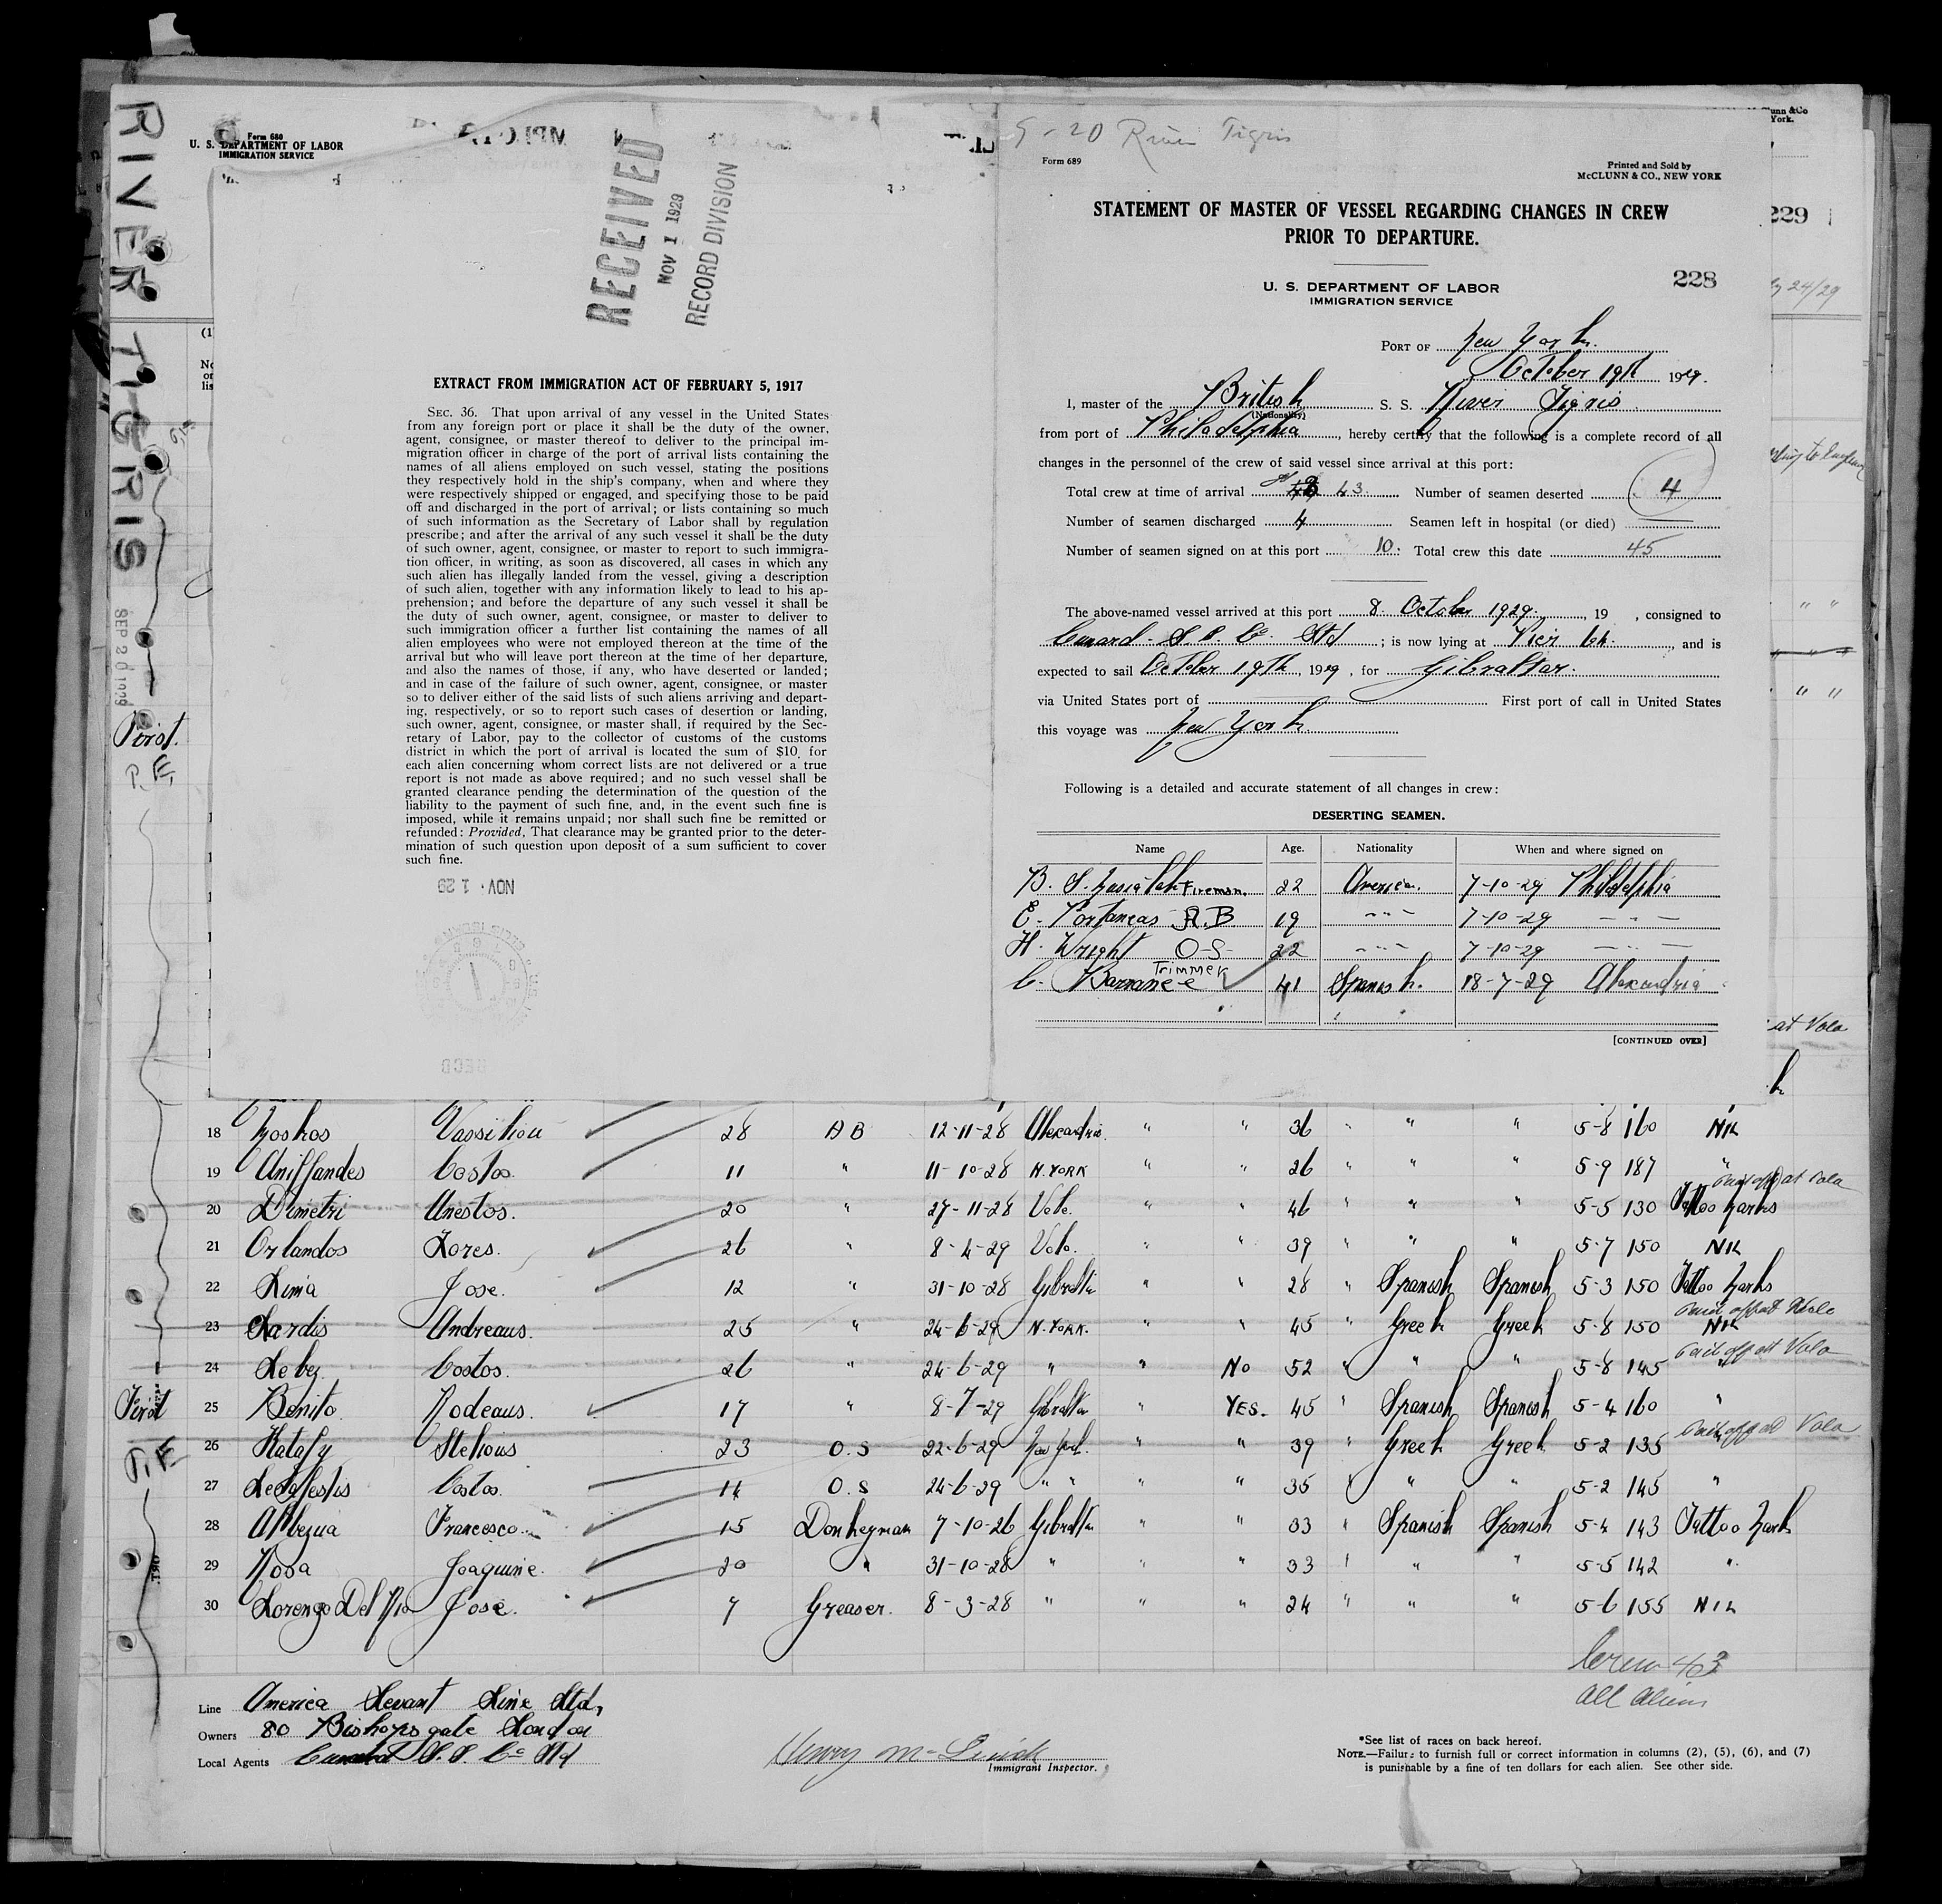 RIVER TIGRIS
SEP 20 1929
First.
P.E.
First
P.E
Form 680
U. S. DEPARTMENT OF LABOR
IMMIGRATION SERVICE
RECEIVED
NOV 1 1929
RECORD DIVISION
EXTRACT FROM IMMIGRATION ACT OF FEBRUARY 5, 1917
SEC. 36. That upon arrival of any vessel in the United States
from any foreign port or place it shall be the duty of the owner,
agent, consignee, or master thereof to deliver to the principal im-
migration officer in charge of the port of arrival lists containing the
names of all aliens employed on such vessel, stating the positions
they respectively hold in the ship's company, when and where they
were respectively shipped or engaged, and specifying those to be paid
off and discharged in the port of arrival; or lists containing so much
of such information as the Secretary of Labor shall by regulation
prescribe; and after the arrival of any such vessel it shall be the duty
of such owner, agent, consignee, or master to report to such immigra-
tion officer, in writing, as soon as discovered, all cases in which any
such alien has illegally landed from the vessel, giving a description
of such alien, together with any information likely to lead to his ap-
prehension; and before the departure of any such vessel it shall be
the duty of such owner, agent, consignee, or master to deliver to
such immigration officer a further list containing the names of all
alien employees who were not employed thereon at the time of the
arrival but who will leave port thereon at the time of her departure,
and also the names of those, if any, who have deserted or landed;
and in case of the failure of such owner, agent, consignee, or master
so to deliver either of the said lists of such aliens arriving and depart-
ing, respectively, or so to report such cases of desertion or landing,
such owner, agent, consignee, or master shall, if required by the Sec-
retary of Labor, pay to the collector of customs of the customs
district in which the port of arrival is located the sum of $10 for
each alien concerning whom correct lists are not delivered or a true
report is not made as above required; and no such vessel shall be
granted clearance pending the determination of the question of the
liability to the payment of such fine, and, in the event such fine is
imposed, while it remains unpaid; nor shall such fine be remitted or
refunded: Provided, That clearance may be granted prior to the deter-
mination of such question upon deposit of a sum sufficient to cover
such fine.
NOV. 1 29
5-20 River Tigris
Form 689
Printed and Sold by
McCLUNN & CO., NEW YORK
STATEMENT OF MASTER OF VESSEL REGARDING CHANGES IN CREW
PRIOR TO DEPARTURE.
228
U. S. DEPARTMENT OF LABOR
IMMIGRATION SERVICE
PORT OF New York.
October 19th 1929.
I, master of the British S. S. River Tigris
(Nationality)
from port of Philadelphia, hereby certify that the following is a complete record of all
changes in the personnel of the crew of said vessel since arrival at this port:
Total crew at time of arrival 43. Number of seamen deserted 4
Number of seamen discharged 4 Seamen left in hospital (or died)
Number of seamen signed on at this port 10. Total crew this date 45
The above-named vessel arrived at this port 8 October 1929., 19 , consigned to
Cunard S.S. Co Ltd; is now lying at Pier 64., and is
expected to sail October 19th, 1929, for Gibraltar.
via United States port of First port of call in United States
this voyage was New York.
Following is a detailed and accurate statement of all changes in crew:
DESERTING SEAMEN.
Name Age. Nationality When and where signed on
B. S. Fireman. 22 America. 7-10-29 Philadelphia
E. A.B 19 " 7-10-29 "
H. Wright O-S- 22 " 7-10-29 "
C. Trimmer 41 Spanish. 18-7-29 Alexandria
[CONTINUED OVER]
unn & Co
York.
229
24/29
at Volo
18 Vassiliou 28 AB 12-11-28 Alexandria. " " 36 " " " 5-8 160 Nil
19 Costos. 11 " 11-10-28 N. YORK " " 26 " " " 5-9 187 "
Paid off at Volo
20 Dimitri Anestos. 20 " 27-11-28 Volo. " " 46 " " " 5-5 130 Tattoo Marks
21 Orlandos 26 " 8-4-29 Volo. " " 39 " " " 5-7 150 Nil
22 Lima Jose. 12 " 31-10-28 Gibraltar " " 28 " Spanish Spanish 5-3 150 Tattoo Marks
Paid off at Volo
23 Lardis Andreaus. 25 " 24-6-29 N. YORK. " " 45 " Greek Greek 5-8 150 Nil
Paid off at Volo
24 Costos. 26 " 24-6-29 " " No 52 " " " 5-8 145 "
25 Benito Rodeaus. 17 " 8-7-29 Gibraltar " YES. 45 " Spanish Spanish 5-4 160 "
Paid off at Volo
26 Katafy Stelious 23 O.S 22-6-29 New York. " " 39 " Greek Greek 5-2 135
27 Costos. 14 O.S 24-6-29 " " " " 35 " " " 5-2 145 "
28 Francesco. 15 Donkeyman 7-10-26 Gibraltar " " 33 " Spanish Spanish 5-4 143 Tattoo Mark
29 Rosa Joaquine. 20 " 31-10-28 " " " 33 " " " 5-5 142 "
30 Lorenzo Del Rio Jose. 7 Greaser. 8-3-28 " " " 24 " " " 5-6 155 Nil
Crew 43
All Aliens
Line America Levant Line Ltd,
Owners 80 Bishopsgate London
Local Agents Cunard S.S. Co Ltd
Immigrant Inspector.
*See list of races on back hereof.
NOTE.—Failure to furnish full or correct information in columns (2), (5), (6), and (7)
is punishable by a fine of ten dollars for each alien. See other side.